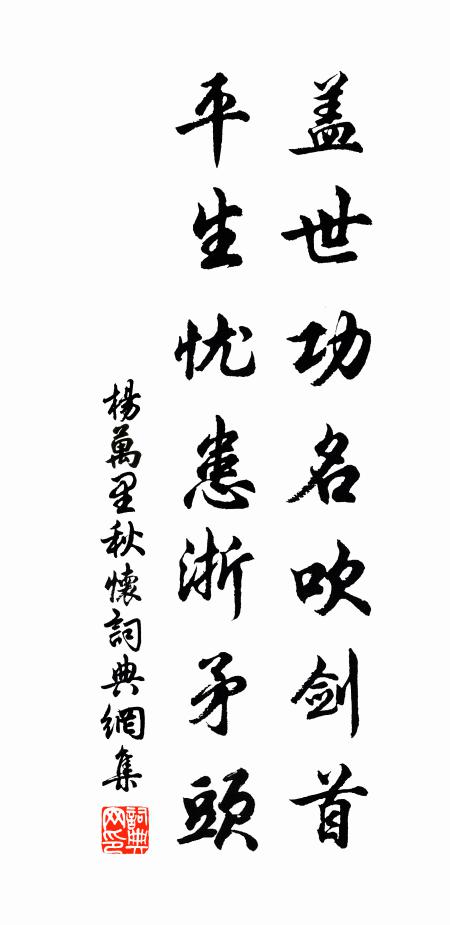 盖世功名吹剑首
平生忧患淅矛頭
楊萬里秋懷詞典網集
詞典网印